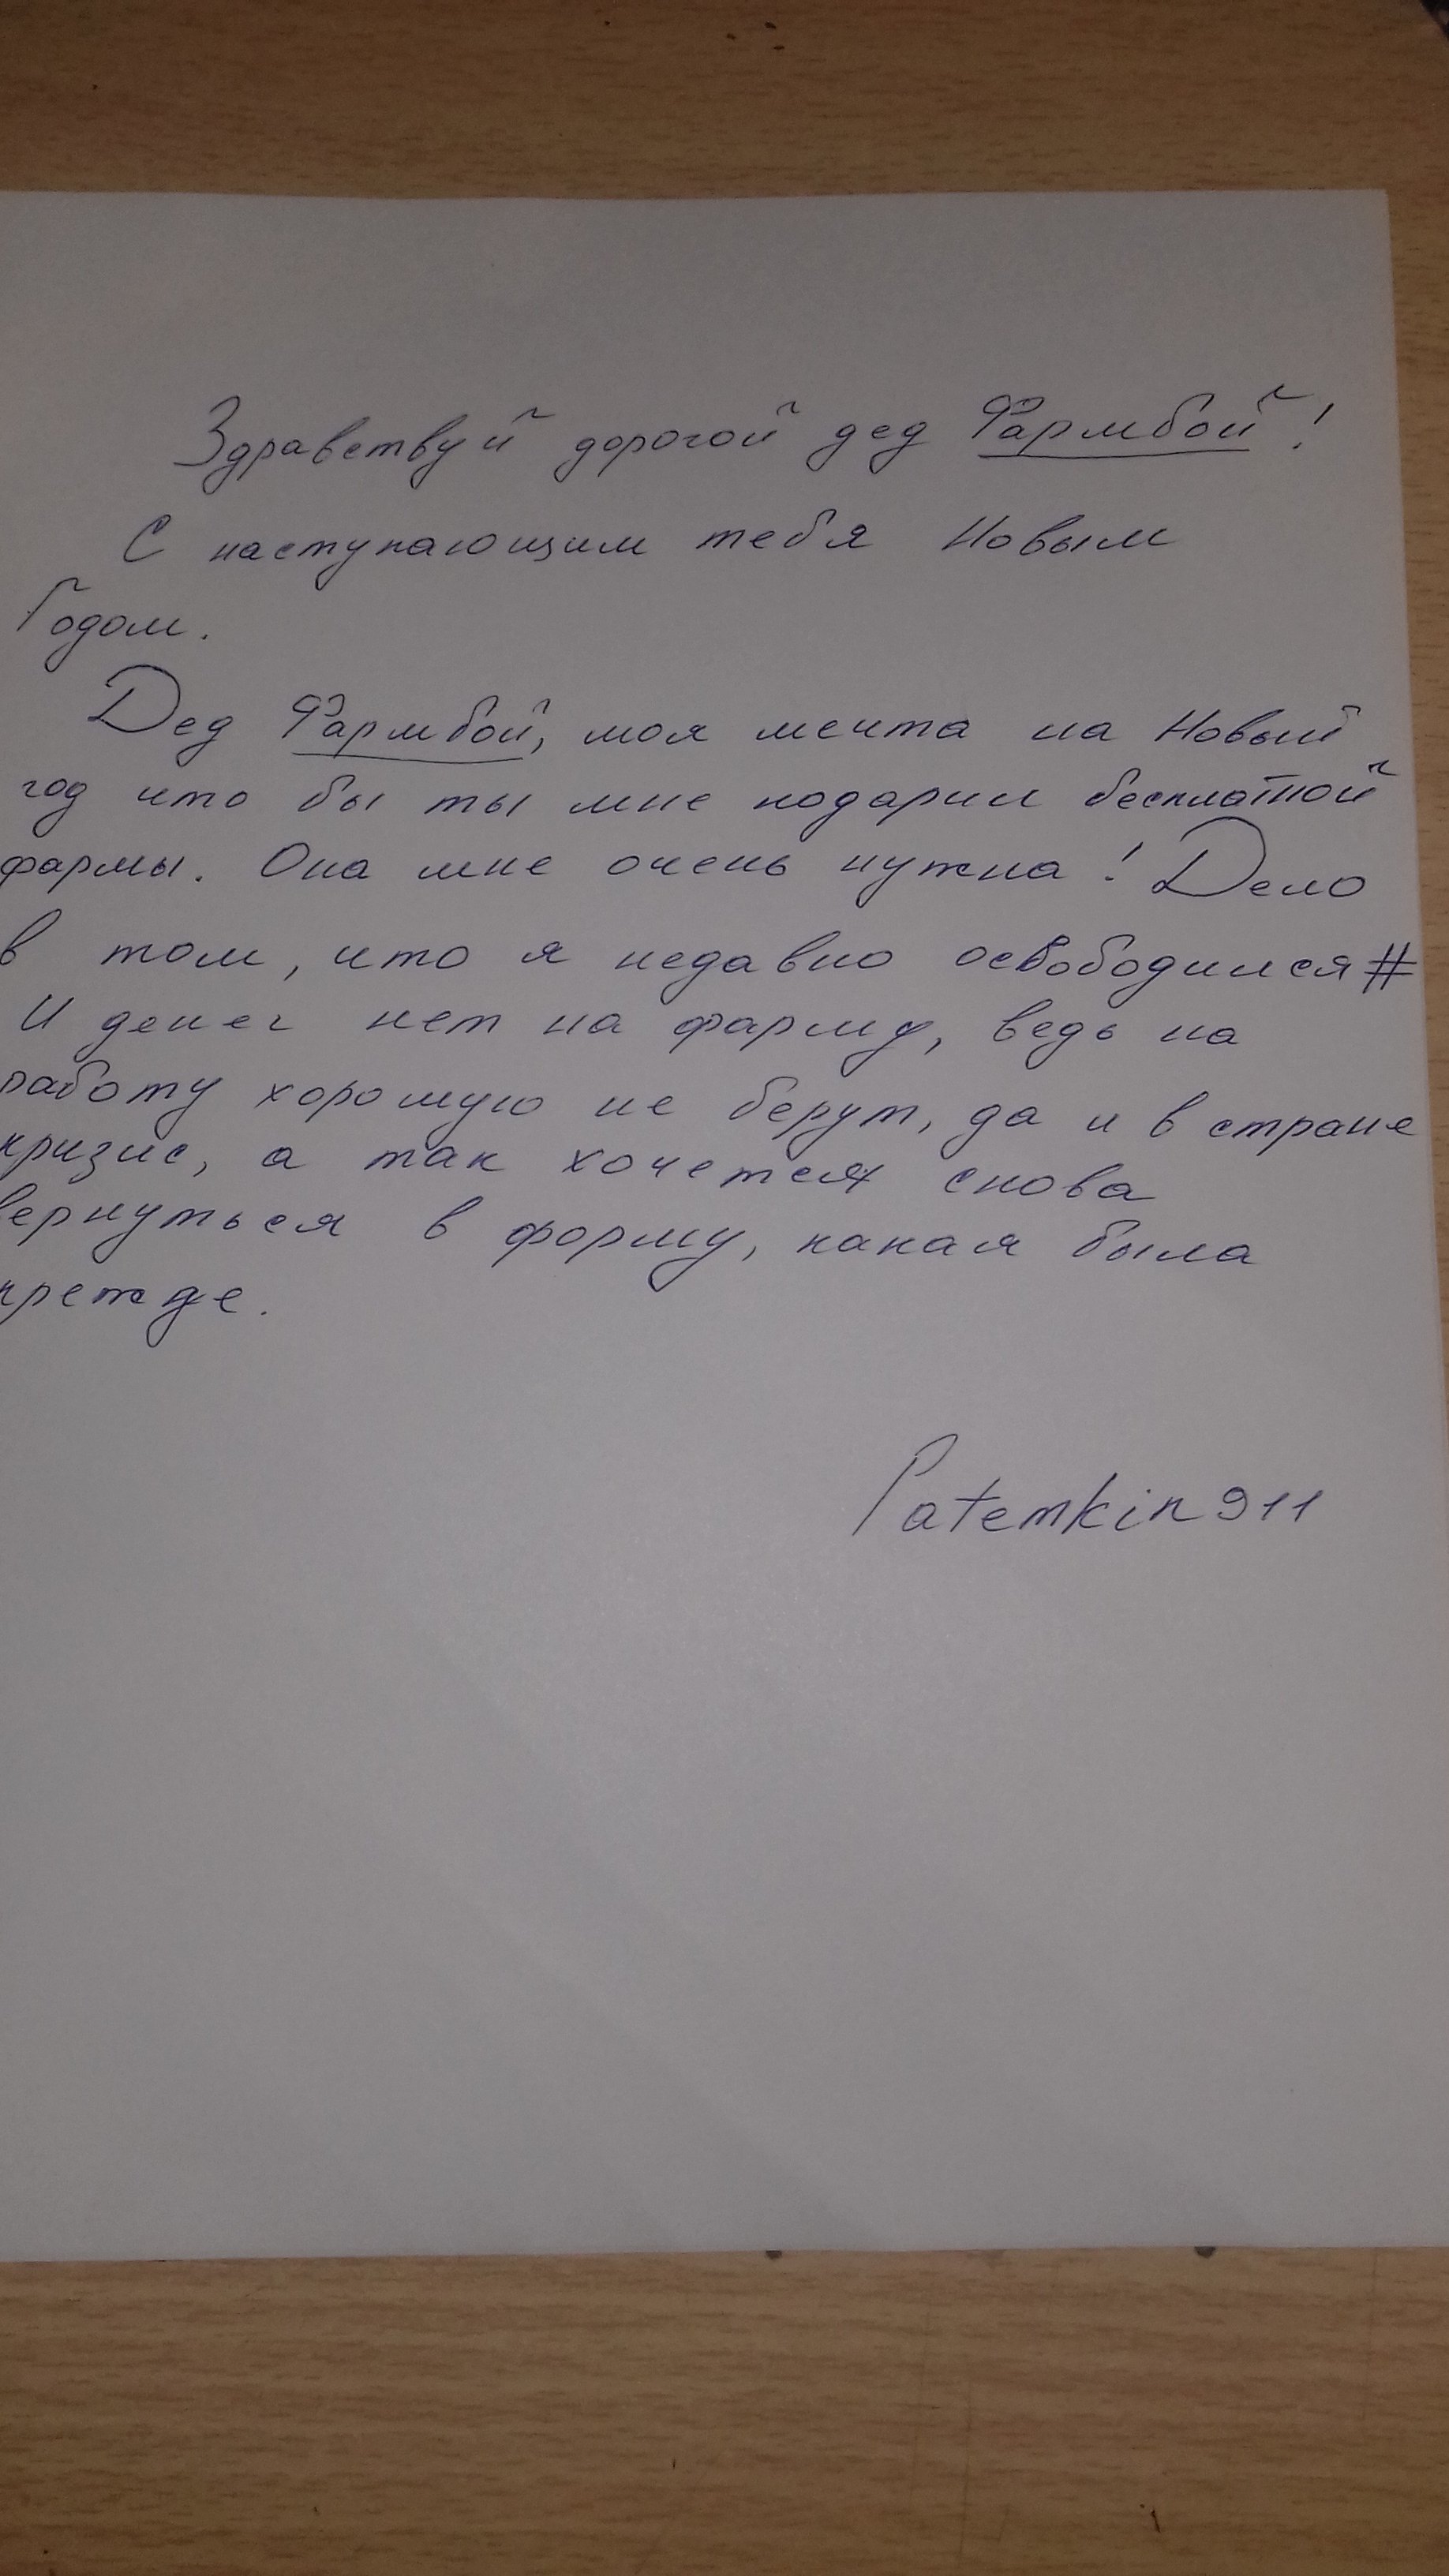 Здравствуй дорогой дед Фармбой!
С наступающим тебя Новым
Годом.
Дед Фармбой, моя мечта на Новый
год что бы ты мне подарил бесплатной
фармы. Она мне очень нужна! Дело
в том, что я недавно освободился #
И денег нет на фарму, ведь на
работу хорошую не берут, да и в стране
кризис, а так хочется снова
вернуться в форму, какая была
прежде.
Patemkin911